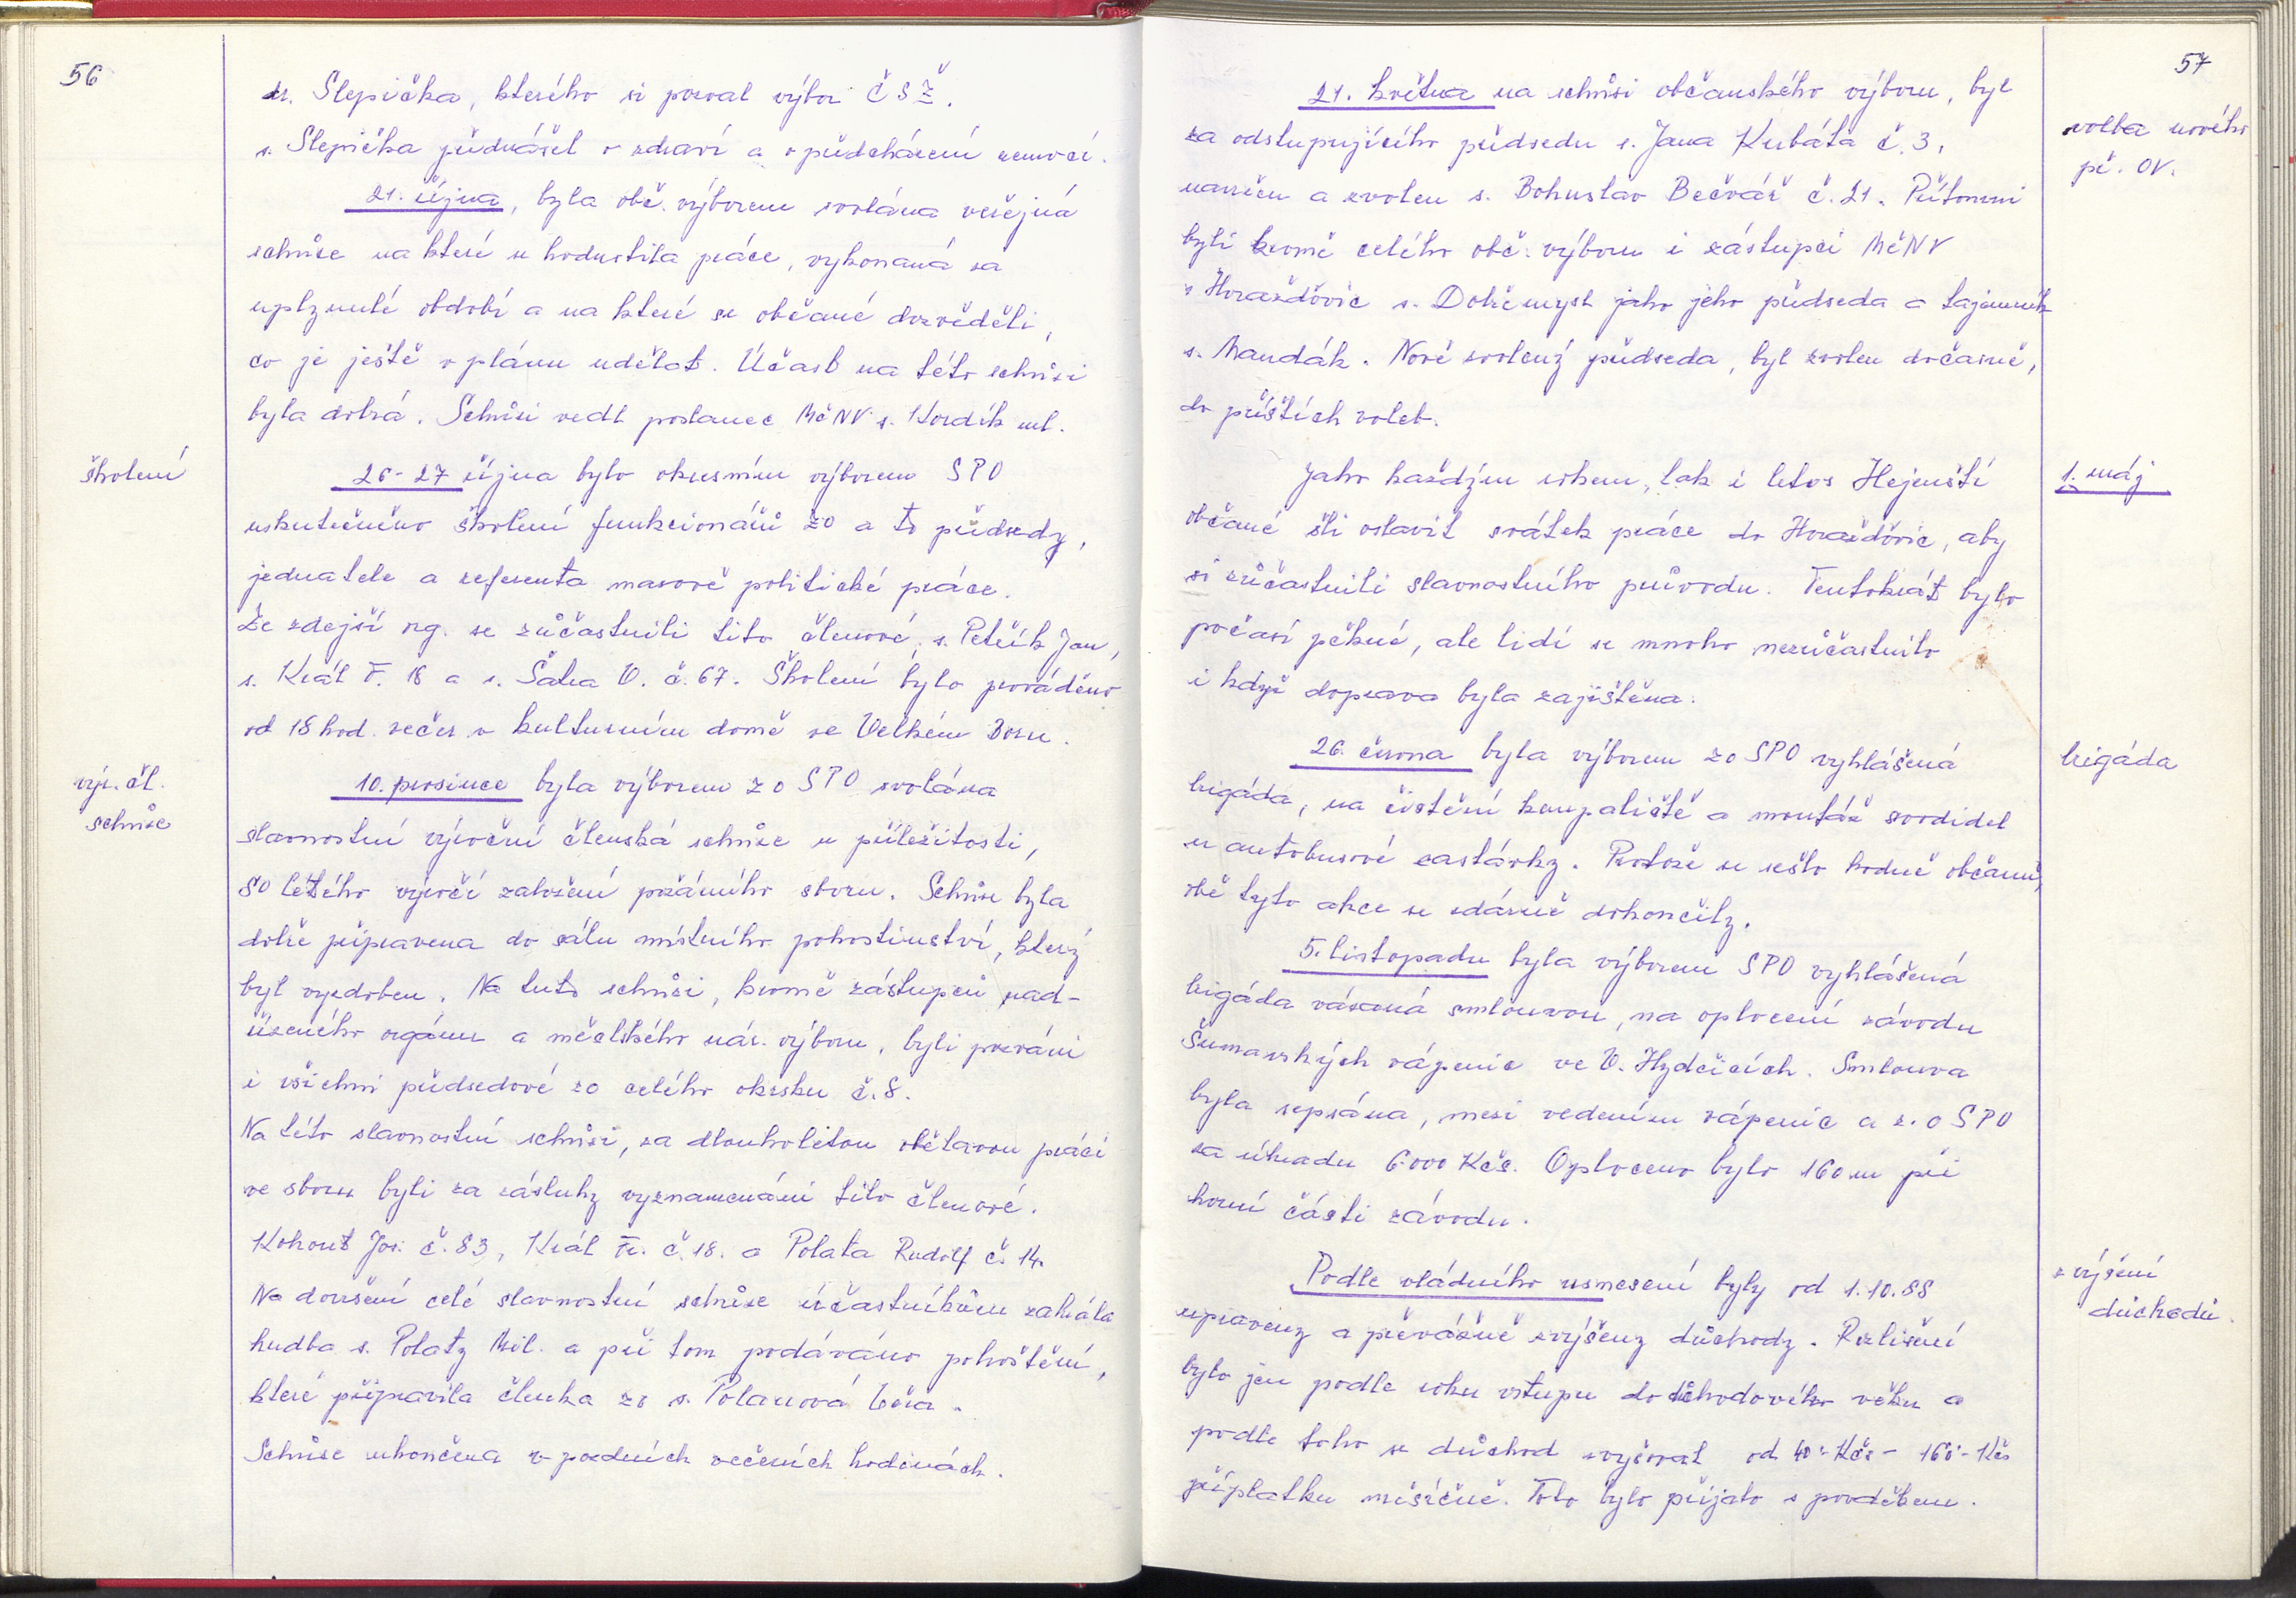 56
dr. Slepička, kterého si pozval výbor ČSŽ.
s. Slepička přednášel o zdraví a o předcházení nemocí.
21. října, byla obč. výborem svolána veřejná
schůze na které se hodnotila práce, vykonaná za
uplynulé období a na které se občané dozvěděli,
co je ještě v plánu udělat. Účast na této schůzi
byla dobrá. Schůzi vedl poslanec MěNV s. Kordík ml.
školení
26-27 října bylo okresním výborem SPO
uskutečněno školení funkcionářů ZO a to předsedy,
jednatele a referenta masově politické práce.
Ze zdejší org. se zúčastnili tito členové, s. Petřík Jan,
s. Král F. 18 a s. Šatra V. č. 67. Školení bylo prováděno
od 18 hod. večer v kulturním domě ve Velkém Boru.
výr. čl.
schůze
10. prosince byla výborem ZO SPO svolána
slavnostní výroční členská schůze u příležitosti,
80 letého výročí založení požárního sboru. Schůze byla
dobře připravena do sálu místního pohostinství, který
byl vyzdoben. Na tuto schůzi, kromě zástupců nad-
řízeného orgánu a městského nár. výboru, byli pozváni
i všichni předsedové zo celého okrsku č. 8.
Na této slavnostní schůzi, za dlouholetou obětavou práci
ve sboru byli za zásluhy vyznamenáni tito členové.
Kohout Jos. č. 83, Král Fr. č. 18. a Polata Rudolf č. 14.
Na dovršení celé slavnostní schůze účastníkům zahrála
hudba s. Polaty Mil. a při tom podáváno pohoštění,
které připravila členka zo s. Polanová Věra.
Schůze ukončena v pozdních večerních hodinách.
57
21. května na schůzi občanského výboru, byl
za odstupujícího předsedu s. Jana Kubáta č. 3,
navržen a zvolen s. Bohuslav Bečvář č. 21. Přítomni
byli kromě celého obč. výboru i zástupci MěNV
z Horažďovic s. Dobřemysl jako jeho předseda a tajemník
s. Mandák. Nově zvolený předseda, byl zvolen dočasně,
do příštích voleb.
volba nového
př. OV.
Jako každým rokem, tak i letos Hejenští
občané šli oslavit svátek práce do Horažďovic, aby
si zúčastnili slavnostního průvodu. Tentokrát bylo
počasí pěkné, ale lidí se mnoho nezúčastnilo
i když doprava byla zajištěna.
1. máj
26. června byla výborem zo SPO vyhlášená
brigáda, na čistění koupaliště a montáž svodidel
u autobusové zastávky. Protože se sešlo hodně občanů,
obě tyto akce se zdárně dokončily.
brigáda
5. listopadu byla výborem SPO vyhlášená
brigáda vázaná smlouvou, na oplocení závodu
Šumavských vápenic ve V. Hydčicích. Smlouva
byla sepsána, mezi vedením vápenic a z. o SPO
za úhradu 6000 Kčs. Oploceno bylo 160 m při
horní části závodu.
Podle vládního usnesení byly od 1.10.88
upraveny a převážně zvýšeny důchody. Rozlišení
bylo jen podle roku vstupu do důchodového věku a
podle toho se důchod zvyšoval od 40.-Kčs - 160.-Kčs
příplatku měsíčně. Toto bylo přijato s povděkem.
zvýšení
důchodů.